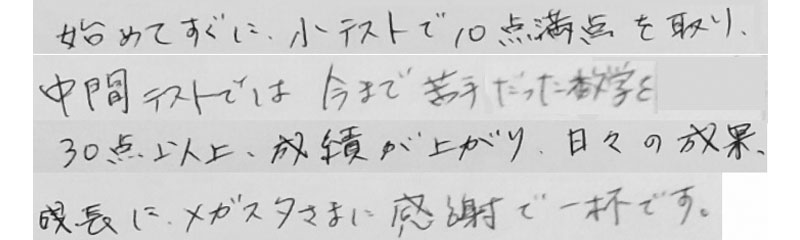 始めてすぐに、小テストで10点満点を取り、
中間テストでは今まで苦手だった数学を
30点以上、成績が上がり、日々の成果、
成長に、メガスタさまに感謝で一杯です。